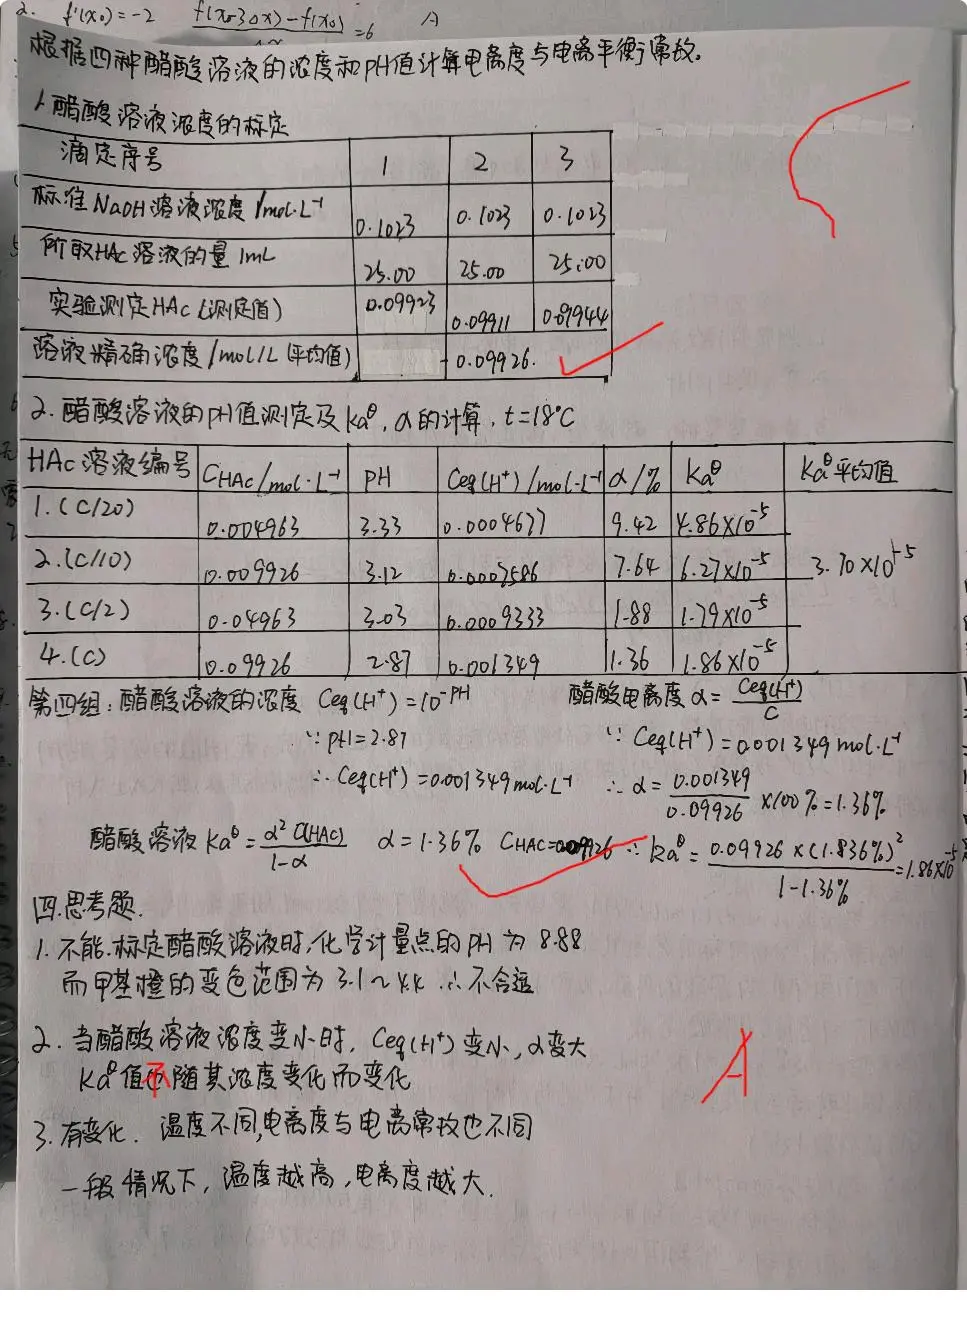 2. f'(x₀)=-2 f(x₀-3△x)-f(x₀) =6 A
根据四种醋酸溶液的浓度和PH值计算电离度与电离平衡常数。
1.醋酸溶液浓度的标定
滴定序号 1 2 3
标准NaOH溶液浓度/mol·L⁻¹ 0.1023 0.1023 0.1023
所取HAc溶液的量/mL 25.00 25.00 25.00
实验测定HAc(测定值) 0.09923 0.09911 0.09944
溶液精确浓度/mol/L(平均值) 0.09926.
2.醋酸溶液的PH值测定及Kaᶿ,α的计算,t=18℃
HAc溶液编号 CHAc/mol·L⁻¹ PH Ceq(H⁺)/mol·L⁻¹ α/% Kaᶿ Kaᶿ平均值
1.(C/20) 0.004963 3.33 0.0004677 9.42 4.86×10⁻⁵
2.(C/10) 0.009926 3.12 0.0007586 7.64 6.27×10⁻⁵ 3.70×10⁻⁵
3.(C/2) 0.04963 3.03 0.0009333 1.88 1.79×10⁻⁵
4.(C) 0.09926 2.87 0.001349 1.36 1.86×10⁻⁵
第四组:醋酸溶液的浓度 Ceq(H⁺)=10⁻ᴾᴴ 醋酸电离度α=Ceq(H⁺)/C
∵PH=2.87 ∵Ceq(H⁺)=0.001349mol·L⁻¹
∴Ceq(H⁺)=0.001349mol·L⁻¹ ∴α=0.001349/0.09926×100%=1.36%
醋酸溶液Kaᶿ=α²C(HAc)/1-α α=1.36% CHAC=0.09926 ∴Kaᶿ=0.09926×(1.836%)²/1-1.36%=1.86×10⁻⁵
四.思考题.
1.不能.标定醋酸溶液时,化学计量点的PH为8.88
而甲基橙的变色范围为3.1~4.4∴不合适
2.当醋酸溶液浓度变小时,Ceq(H⁺)变小,α变大
Kaᶿ值不随其浓度变化而变化
A
3.有变化.温度不同,电离度与电离常数也不同
一般情况下,温度越高,电离度越大.